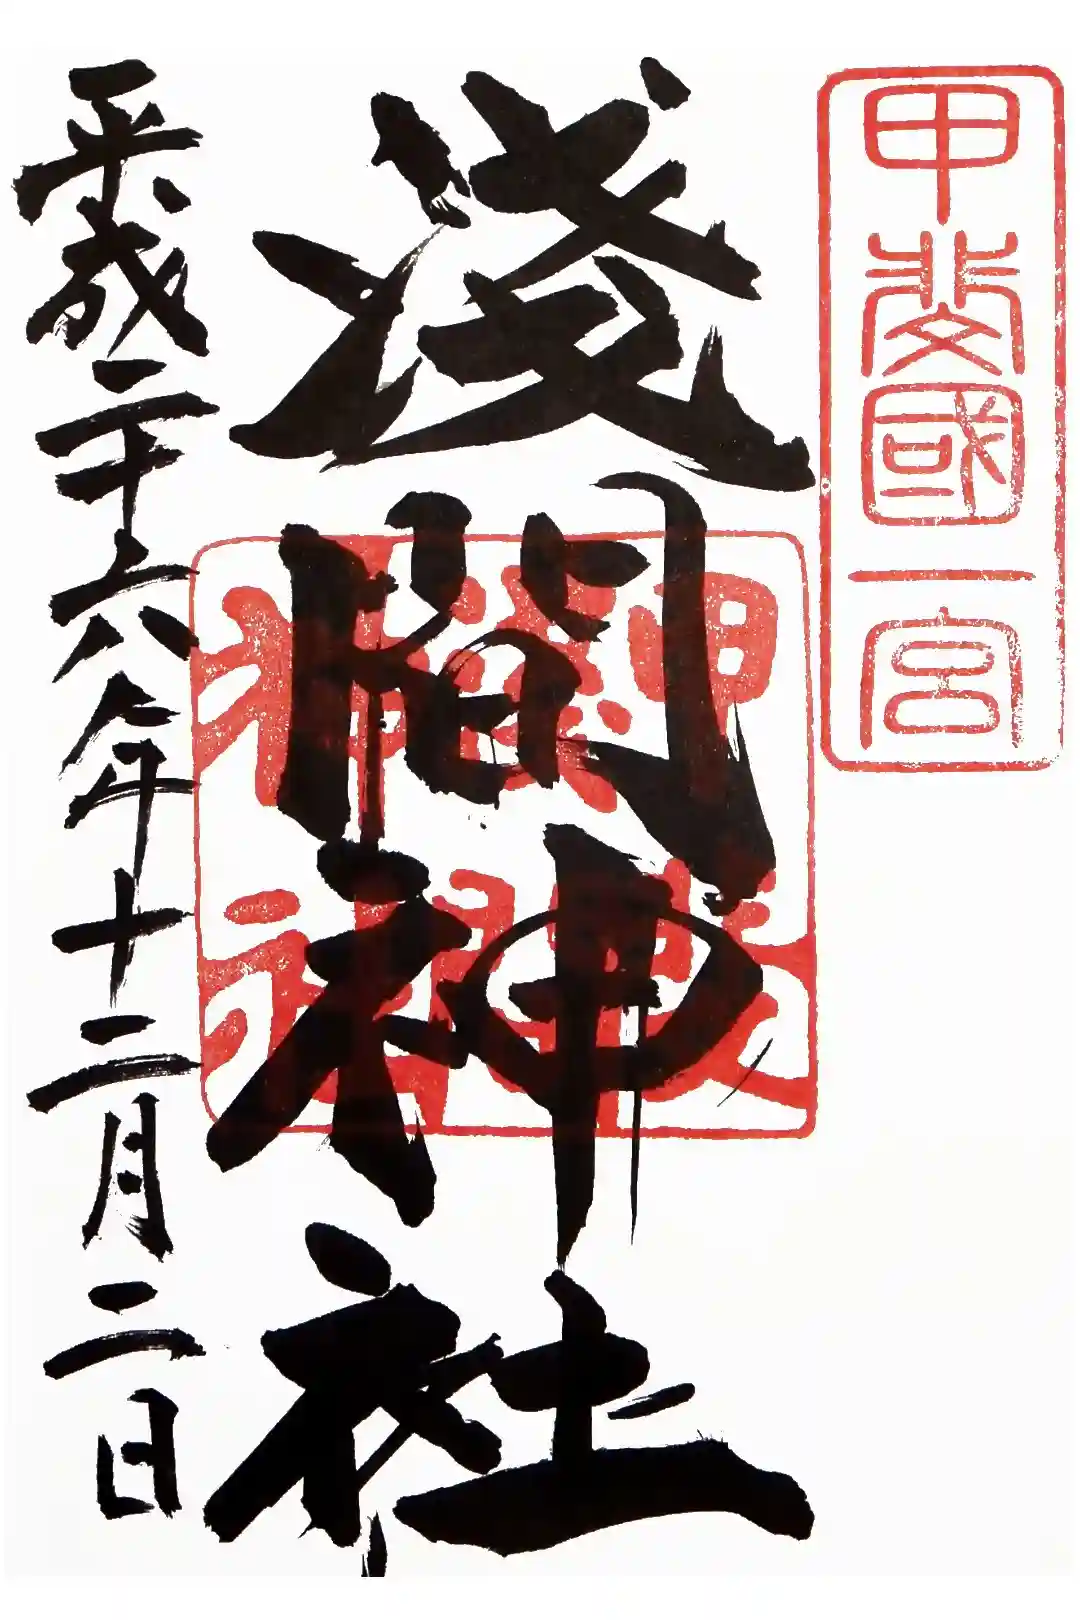 甲斐國一宮
淺間神社
平成二十六年十二月二日